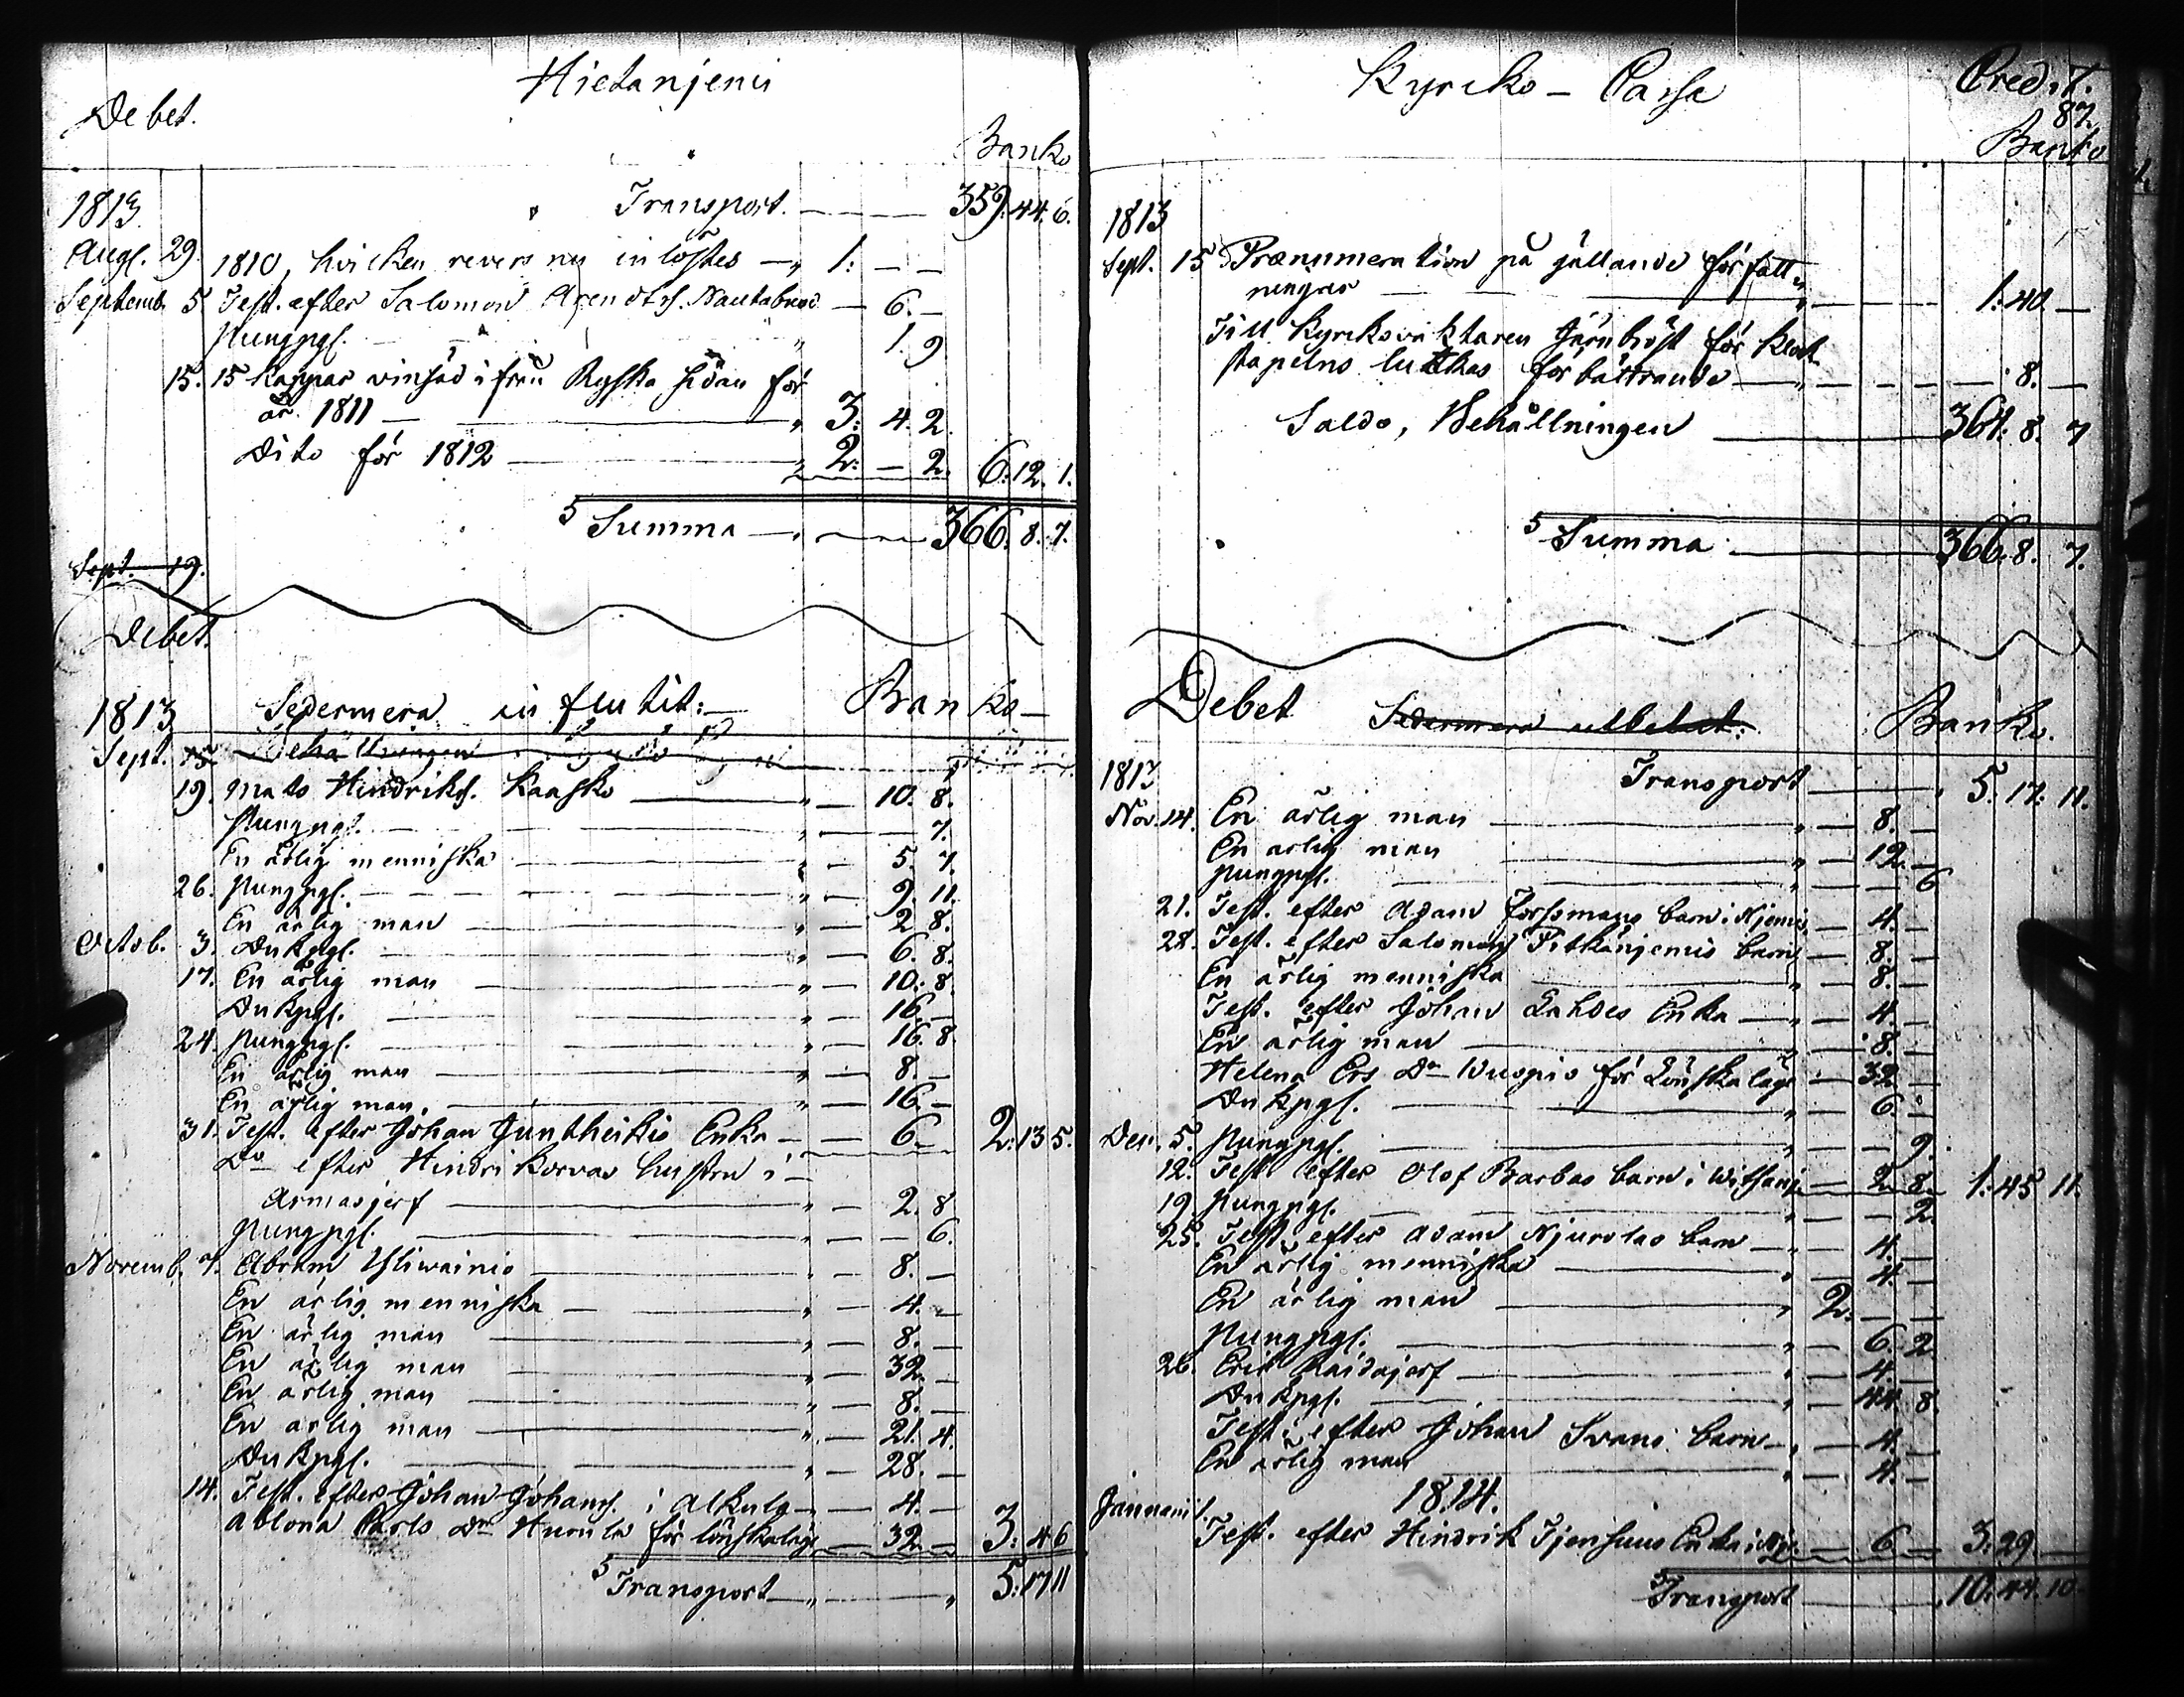 Hietanjemi
Debet.
Banko
1813. Transport. 359. 44. 6.
Aug. 29. 1810, hvilken revers nu inlöstes 1. – –
Septemb. 5. Test. efter Salomon Arendts. Nautabuod 6. –
Pungpg. 1. 9
15. 15 kappar vinsäd ifrån Ryska sidan för
år 1811 3. 4. 2
Dito för 1812 2. – 2. 6. 12. 1.
Summa 366. 8. 7.
Sept. 19.
Debet.
1813 Sedermera influtit: Banko
Sept. 15 Behållningen
19. Mats Hindrikss. Kaasko 10. 8.
Pungpg. 7.
En ärlig menniska 5. 7.
26. Pungpg. 9. 11.
En ärlig man 2. 8.
Octob. 3. Dukpg. 6. 8.
17. En ärlig man 10. 8.
Dukpg. 16. –
24. Pungpg. 16. 8.
En ärlig man 8. –
En ärlig man. 16. –
31. Test. efter Johan Juntheikis Enka 6. – 2. 13. 5.
Do efter Hindri Korvas hustru i
Armasjerf 2. 8
Pungpg. 6.
Novemb. 7. Abram Yliwainio 8. –
En ärlig menniska 4. –
En ärlig man 8. –
En ärlig man 32. –
En ärlig man 8. –
En ärlig man 21. 4.
Dukpg. 28. –
14. Test. efter Johan Johans. i Alkula 4. –
Ablona Carls Dr Hurula för löuskaläge 32. – 3. 4. 6
Transport 5. 17. 11
Kyrcko – Cassa
Credit.
87.
Banko
1813
Sept. 15 Prænumeration på gällande författ-
ningar 1. 40. –
Till Kyrckovaktaren Järnhöst för klock
stapelns luckas förbättrande 8. –
Saldo, Behållningen 364. 8. 7
Summa 366. 8. 7.
Debet Sedermera utbetalt: Banko.
1813 Transport 5. 17. 11.
Nov. 14. En ärlig man 8. –
En ärlig man 12. –
Pungpg. 6
21. Test. efter Adam Forssmans barn i Njemis 4. –
28. Test. efter Salomon Pitkänjemis barn 8. –
En ärlig menniska 8. –
Test. efter Johan Lahdes Enka 4. –
En ärlig man 8. –
Helena Ers Dr Wuopio för Löuskaläge 32 –
Dukpg. 6. –
Dec. 5. Pungpg. 9.
12. Test. efter Olof Barbas barn i Witsanj. 2. 8. 1. 45 11.
19. Pungpg. 2.
25. Test. efter Adam Njurolas barn 4. –
En ärlig menniska 4. –
En ärlig man 2. – –
Pungpg. 6. 2
26. Eric Raidajerf 4. –
Dukpg. 44. 8.
Test. efter Johan Svans barn 4. –
En ärlig man 4. –
1814.
Januarii 1.
Test. efter Hindrik Tjensuus Enka i Nj. 6 – 3. 29. –
Transport 10. 44. 10.